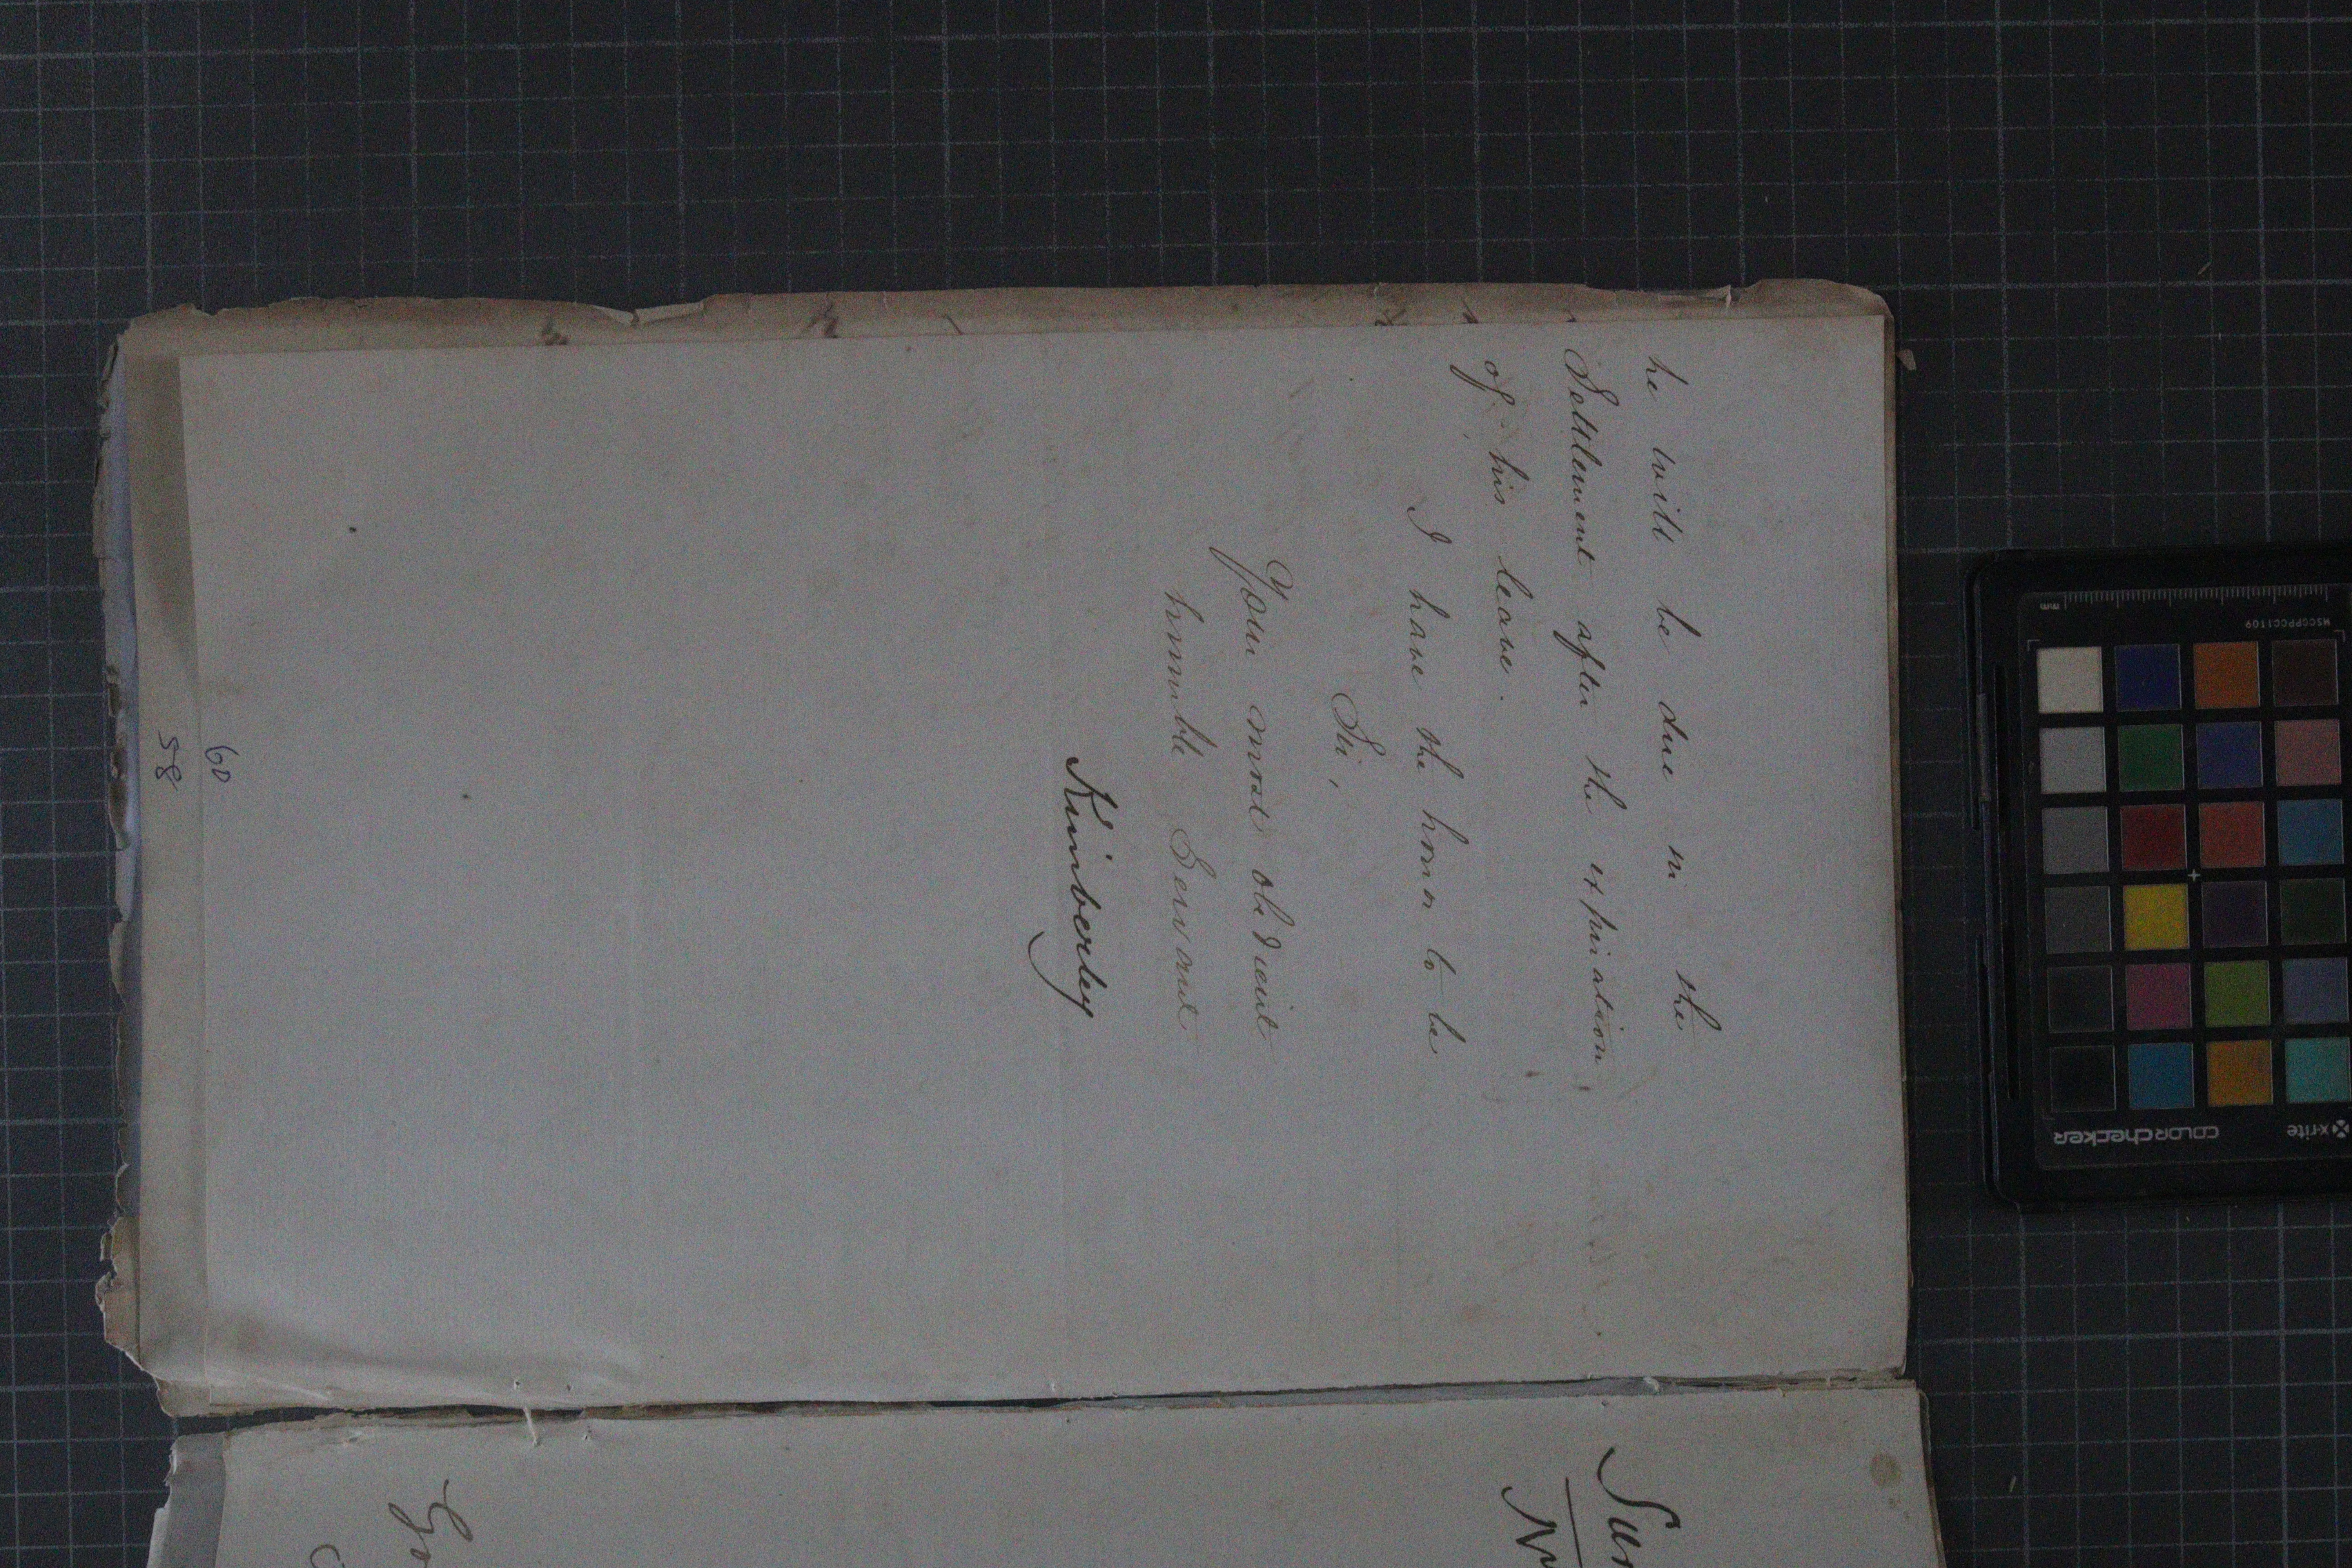 he will be due in the
Settlement after the expiration
of his leave.
I have the honor to be
Sir,
Your most obedient
humble Servant
Kimberley
60
58
mm
MSCCPPCC1109
x-rite
colorchecker